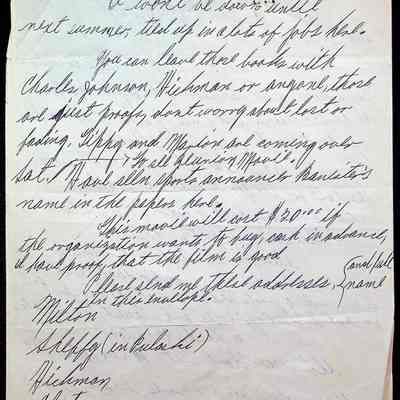 I won't be down until
next summer, tied up in a lots of jobs here.
You can leave those books with
Charles Johnson, Hickman or anyone, those
are just proofs, dont worry about lost or
fading. Tippy and Marion are coming over
Sat. to see reunion Movie.
Have seen sports announcer Banister's
name in the papers here.
This movie will cost $20.00 if
the organization wants to buy, cash in advance,
I have proof that the film is good
Please send me these addresses, (and full name
in this envelope.
Milton
Sheppy (in Pulaski)
Hickman